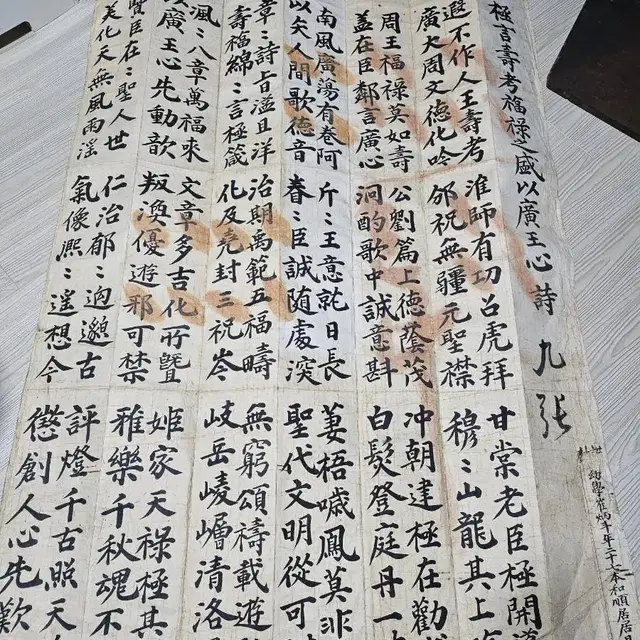 極言壽考福祿之盛以廣王心詩 九張
遐不作人王壽考
廣大周文德化吟
周王福祿莫如壽
蓋在臣鄰言廣心
南風廣蕩有卷阿
以矢人間歌德音
章〻詩旨溢且洋
壽福綿〻言極箴
渢〻八章萬福來
以廣王心先動歆
賢臣在〻聖人世
美化天無風雨淫
淮師有功召虎拜
邠祝無疆元聖襟
公劉篇上德蔭茂
泂酌歌中誠意斟
斤〻王意乾日長
眷〻臣誠随處深
治期禹範五福疇
化及堯封三祝岑
文章多吉化所暨
叛渙優遊邪可禁
仁治郁〻迺邈古
氣像熙〻遥想今
甘棠老臣極開導
穆〻山龍其上
冲朝建極在勸
白髮登庭丹一
萋梧噦鳳莫非
聖代文明從可
無窮頌禱載遊
岐岳崚嶒清洛
姬家天祿極其
雅樂千秋魂不
評燈千古照天
懲創人心先歎
幼學崔炳 年二十 本和順居